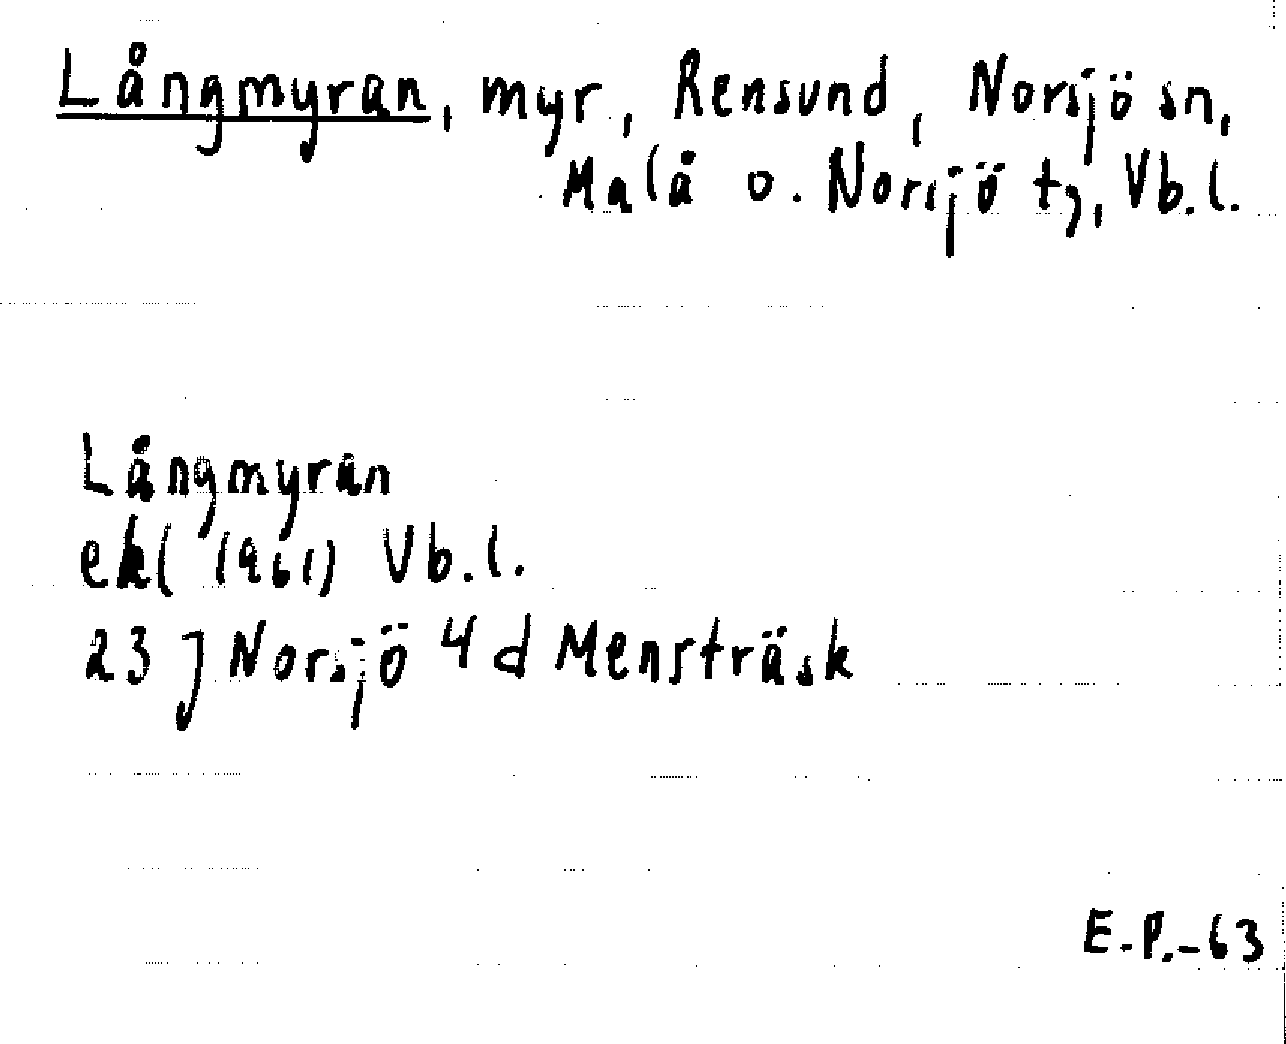 Långmyran, myr, Rensund, Norsjö sn,
Malå o. Norsjö tg, Vb.l.
Långmyran
ekl (1961) Vb.l.
23 J Norsjö 4 d Mensträsk
E.P.-63